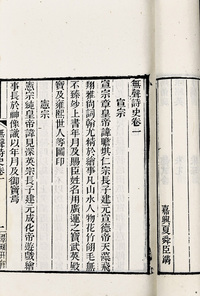 嘉興夏舜臣
無聲詩史卷一
宣宗
宣宗章皇帝諱瞻基仁宗長子建元宣德帝天藻飛
翔雅尚詞翰尤精於繪事凡山水人物花竹翎毛無
不臻妙上書年月及賜臣姓名用廣運之寶武英殿
寶及雍熙世人等圖印
憲宗
憲宗純皇帝諱見深英宗長子建元成化帝遊戲繪
事長於神像識以年月及御寶焉
無聲詩史卷一